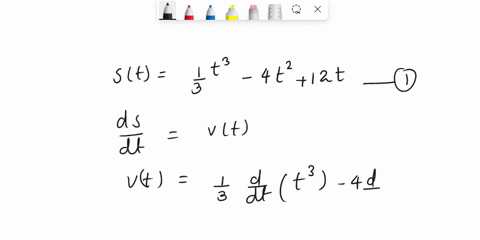 s(t) = 1/3 t³ - 4t² + 12t —— ①
ds/dt = v(t)
v(t) = 1/3 d/dt (t³) - 4 d